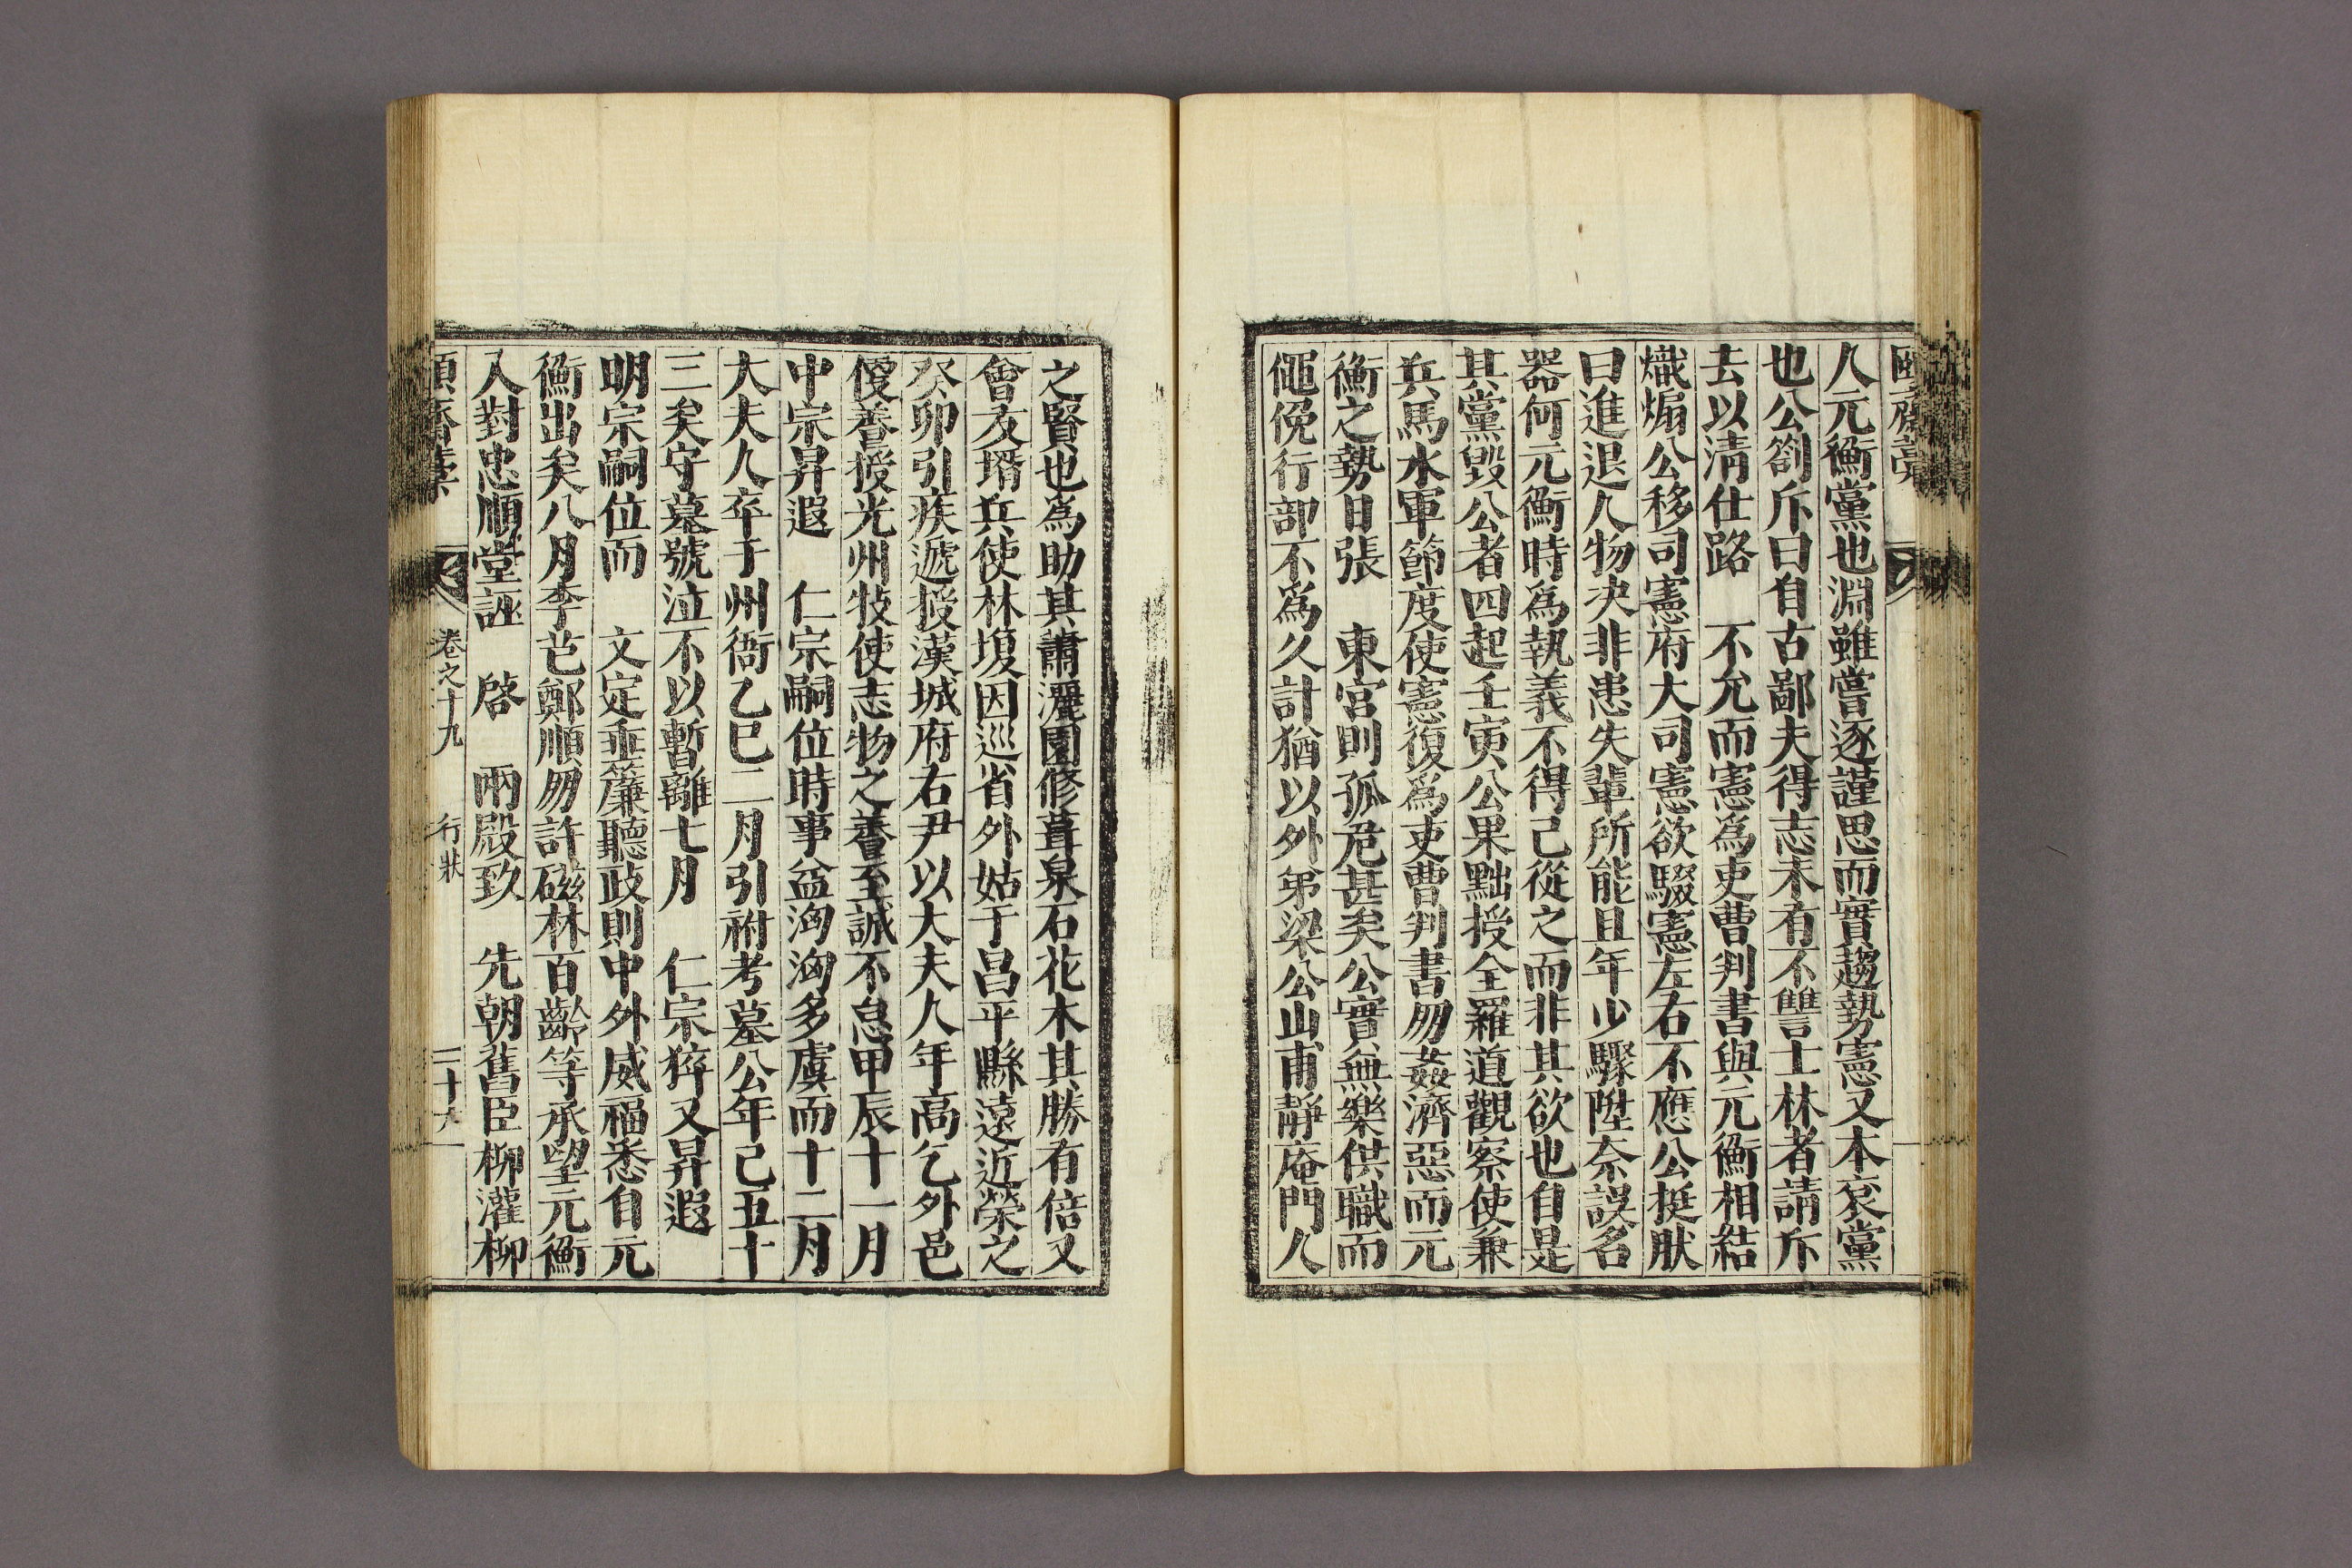 人元衡黨也淵雖嘗逐謹思而實趨勢憲又本袞黨
也公劄斥曰自古鄙夫得志未有不讐士林者請斥
去以淸仕路　不允而憲爲吏曹判書與元衡相結
熾煽公移司憲府大司憲欲駁憲左右不應公挺肰
曰進退人物決非患失輩所能且年少驟陞奈誤名
器何元衡時爲執義不得已從之而非其欲也自是
其黨毀公者四起壬寅公果黜授全羅道觀察使兼
兵馬水軍節度使憲復爲吏曹判書朋姦濟惡而元
衡之勢日張　東宮則孤危甚矣公實無樂供職而
僶俛行部不爲久計猶以外弟梁公山甫靜庵門人
之賢也爲助其肅灑園修葺泉石花木其勝有倍又
會友壻兵使林堎因巡省外姑于昌平縣遠近榮之
癸卯引疾遞授漢城府右尹以大夫人年高乞外邑
優善授光州牧使志物之養至誠不怠甲辰十一月
中宗昇遐　仁宗嗣位時事益洶洶多虞而十二月
大夫人卒于州衙乙巳二月引祔考墓公年已五十
三矣守墓號泣不以暫離七月　仁宗猝又昇遐
明宗嗣位而　文定垂簾聽政則中外威福悉自元
衡出矣八月李芑鄭順朋許磁林百齡等承望元衡
入對忠順堂誣　啓　兩殿致　先朝舊臣柳灌柳
頤齋藁　卷之十九　行狀